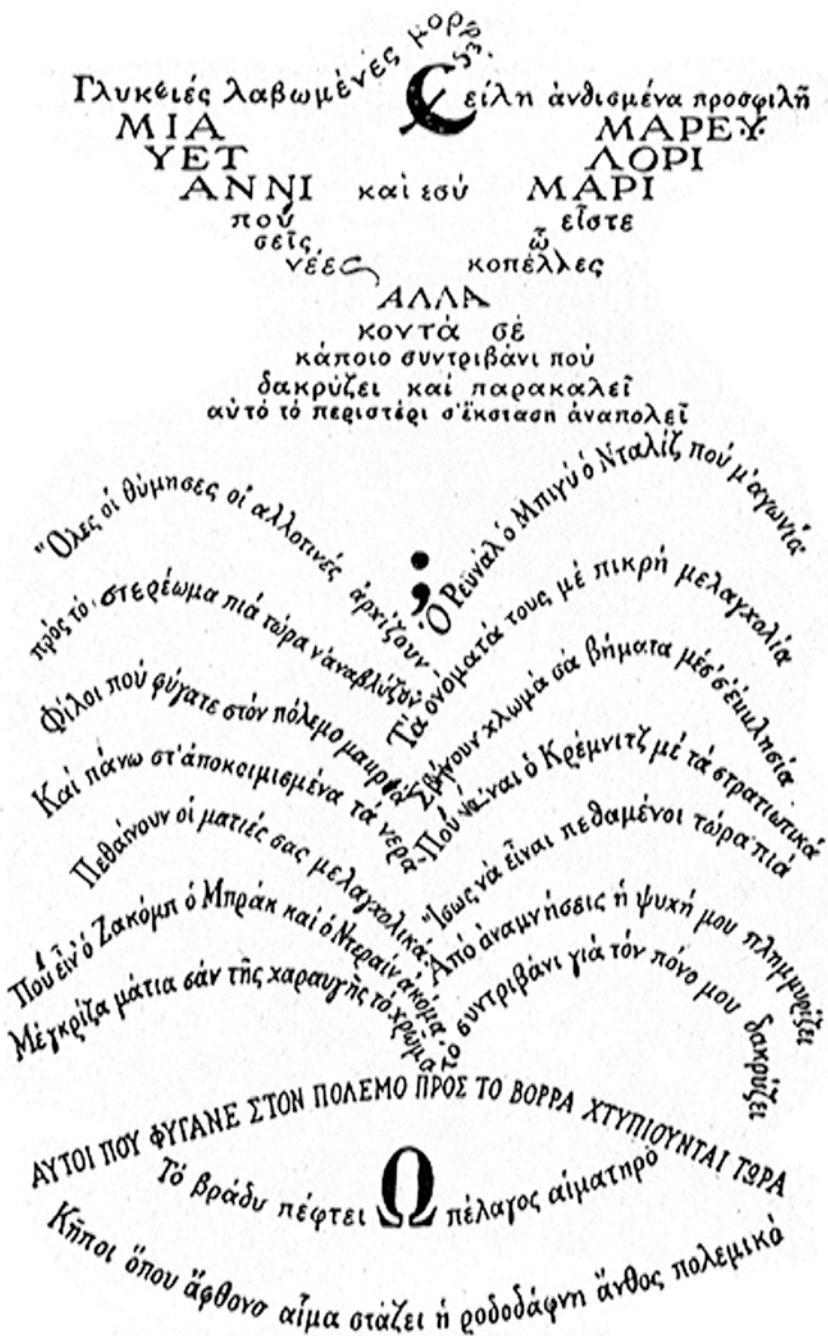 Γλυκειές λαβωμένες μορφές.
Χείλη ἀνθισμένα προσφιλῆ
ΜΙΑ ΜΑΡΕΥ
ΥΕΤ ΛΟΡΙ
ΑΝΝΙ καί εσύ ΜΑΡΙ
πού εἶστε
σεῖς ὦ
νέες κοπέλλες
ΑΛΛΑ
κοντά σέ
κάποιο συντριβάνι πού
δακρύζει καί παρακαλεῖ
αὐτό τό περιστέρι σ'ἔκσταση ἀναπολεῖ
Ὅλες οἱ θύμησες οἱ αλλοτινές ἀρχίζουν
πρός τό στερέωμα πιά τώρα ν'αναβλύζουν
Φίλοι πού φύγατε στόν πόλεμο μακρυά
Καί πάνω στ'ἀποκοιμισμένα τά νερα
Πεθαίνουν οἱ ματιές σας μελαγχολικά
Πού εἶν ὁ Ζακόμπ ὁ Μπράκ καί ὁ Ντεραίν ἀκόμα
Μέ γκρίζα μάτια σάν τῆς χαραυγῆς τό χρωμα
;
Ὁ Ρεϋνάλ ὁ Μπιγύ ὁ Νταλίζ πού μ'αγωνία
Τά ονοματά τους μέ πικρή μελαγχολία
Σβήνουν χλωμά σά βήματα μέσ σ'ἐκκλησία
Πού νά'ναι ὁ Κρέμνιτζ μέ τά στρατιωτικά
Ἴσως νά εἶναι πεθαμένοι τώρα πιά
Ἀπό ἀναμνήσεις ἡ ψυχή μου πλημμυρίζει
Το συντριβάνι γιά τόν πόνο μου δακρύζει
ΑΥΤΟΙ ΠΟΥ ΦΥΓΑΝΕ ΣΤΟΝ ΠΟΛΕΜΟ ΠΡΟΣ ΤΟ ΒΟΡΡΑ ΧΤΥΠΙΟΥΝΤΑΙ ΤΩΡΑ
Τό βράδυ πέφτει Ω πέλαγος αἱματηρό
Κῆποι ὅπου ἄφθονο αἷμα στάζει ἡ ροδοδάφνη ἄνθος πολεμικό